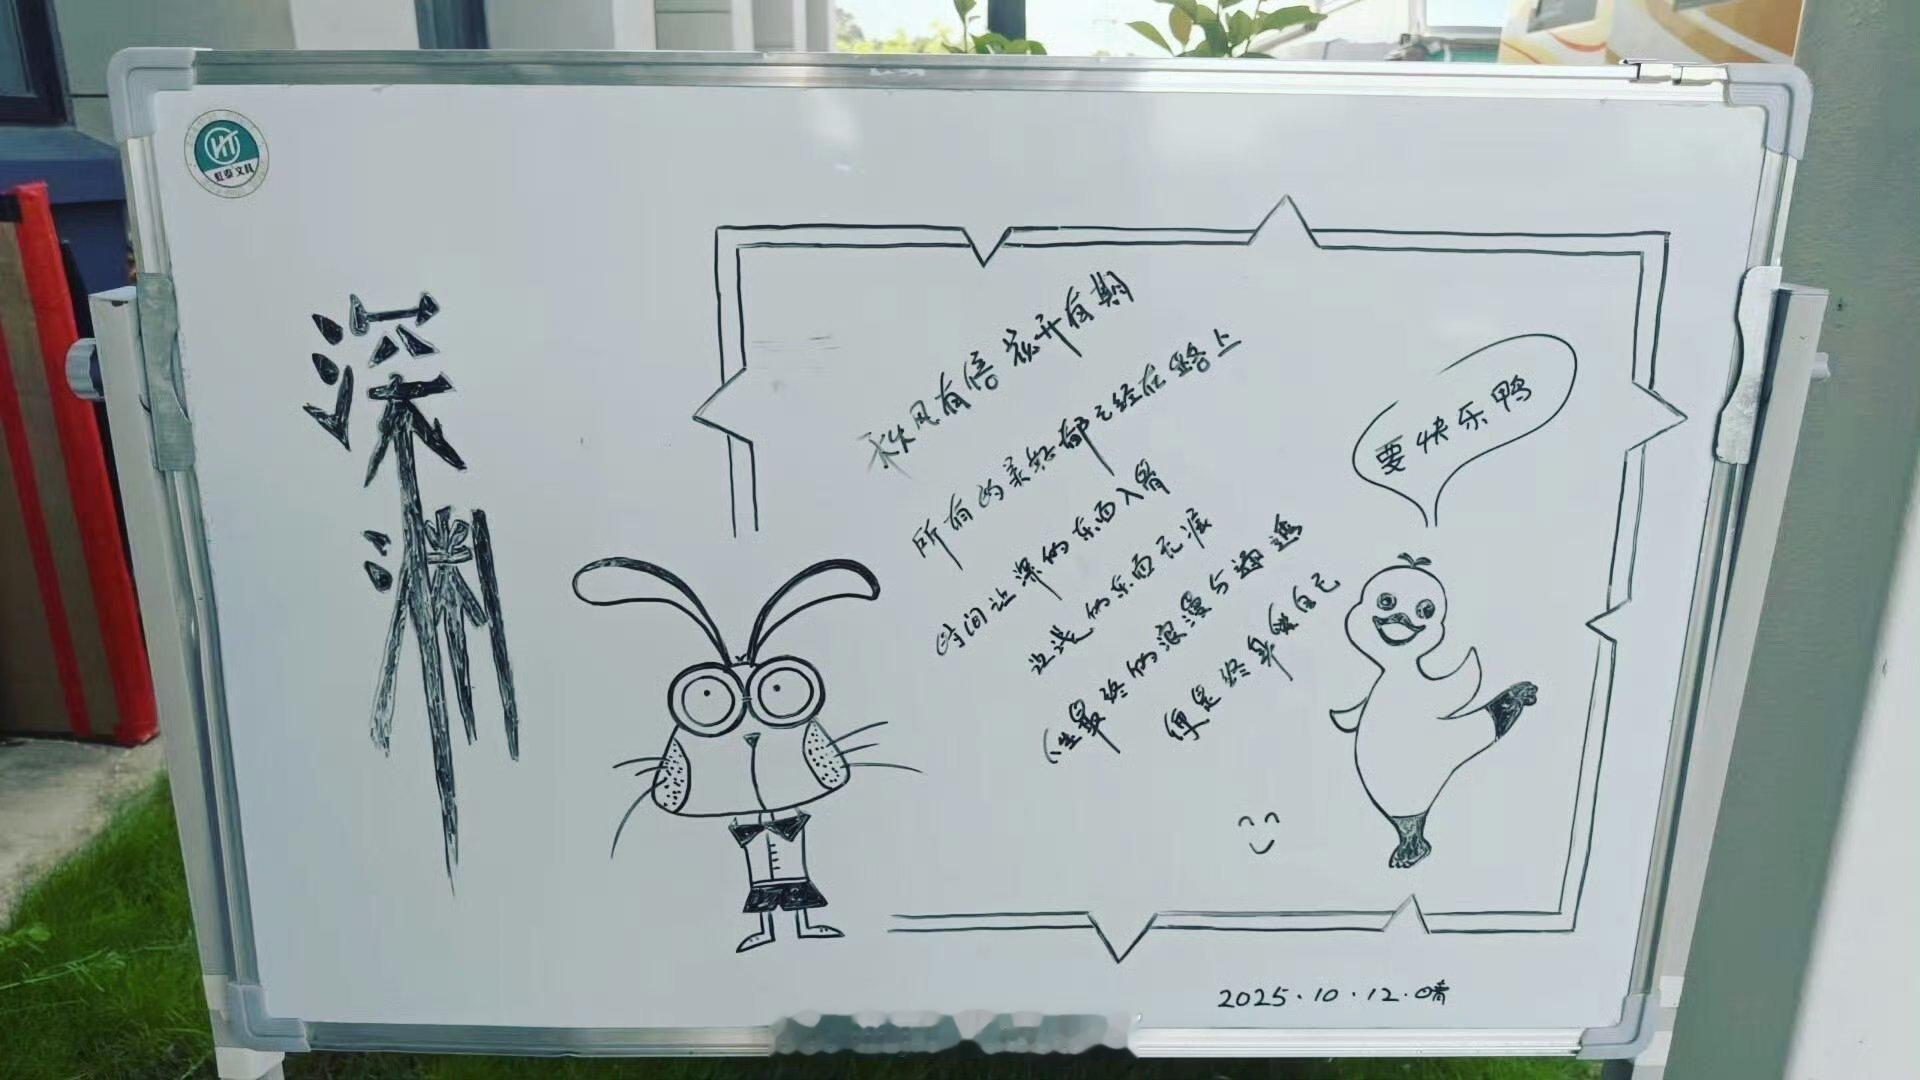 HT
虹泰文化
深渊
秋风有信花开有期
所有的美好都已经在路上
时间让深的东西入骨
让浅的东西无痕
人生最终的浪漫与通透
便是终身爱自己
要快乐鸭
2025.10.12.晴